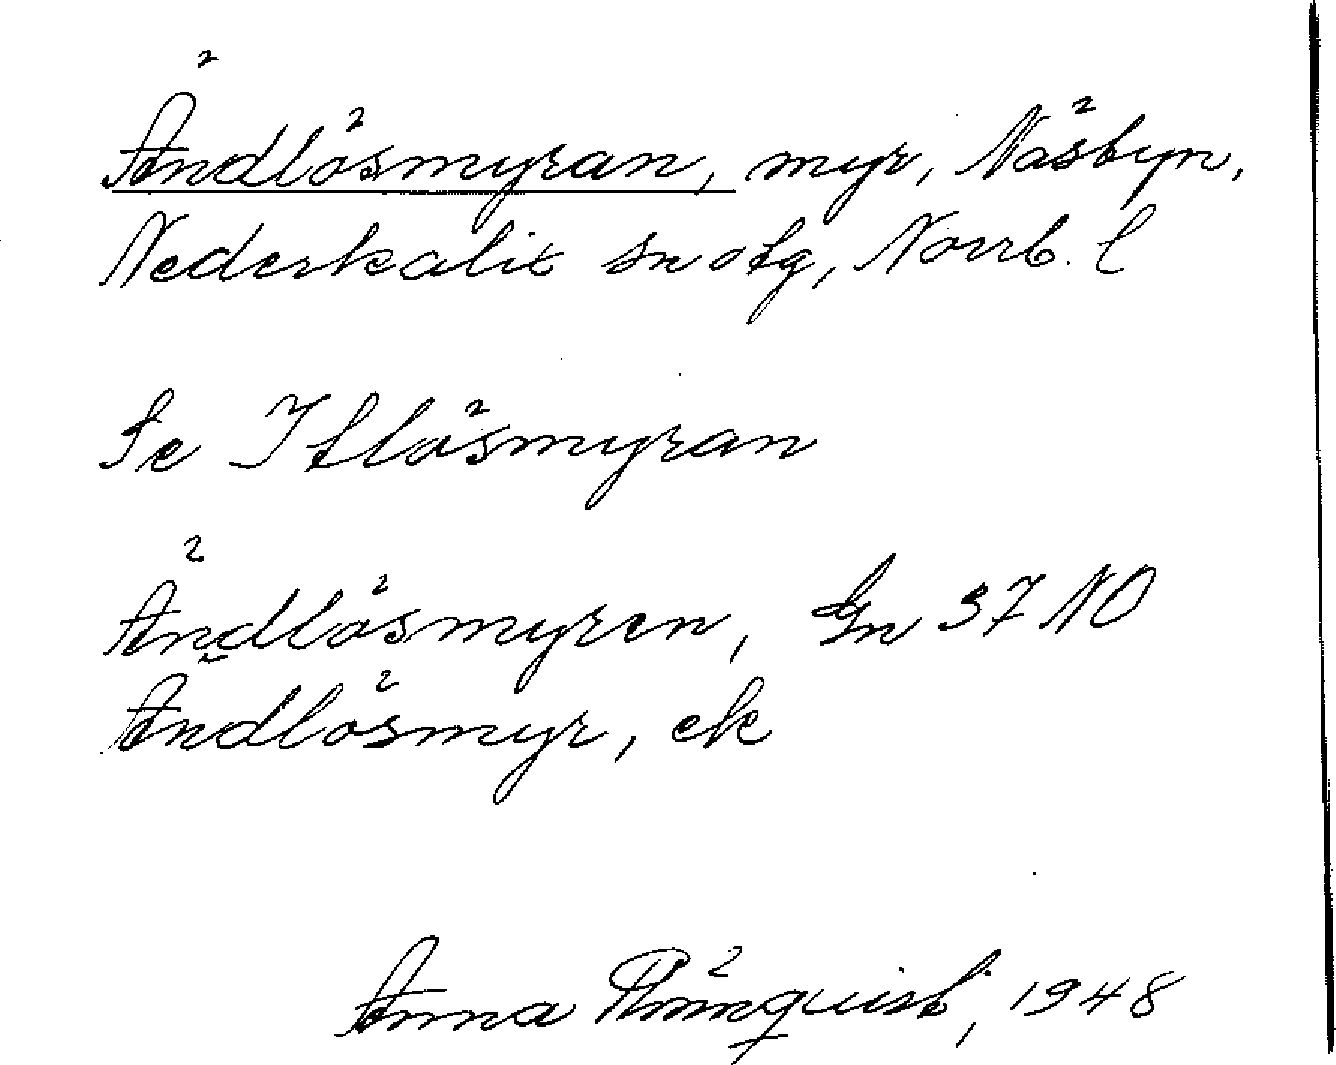 Ändlösmyran, myr, Näsbyn,
Nederkalix sn o tg, Norrb. l
Se Itlösmyran
Ändlösmyren, Gn 37 NO
Ändlösmyr, ek
Anna Rönquist, 1948